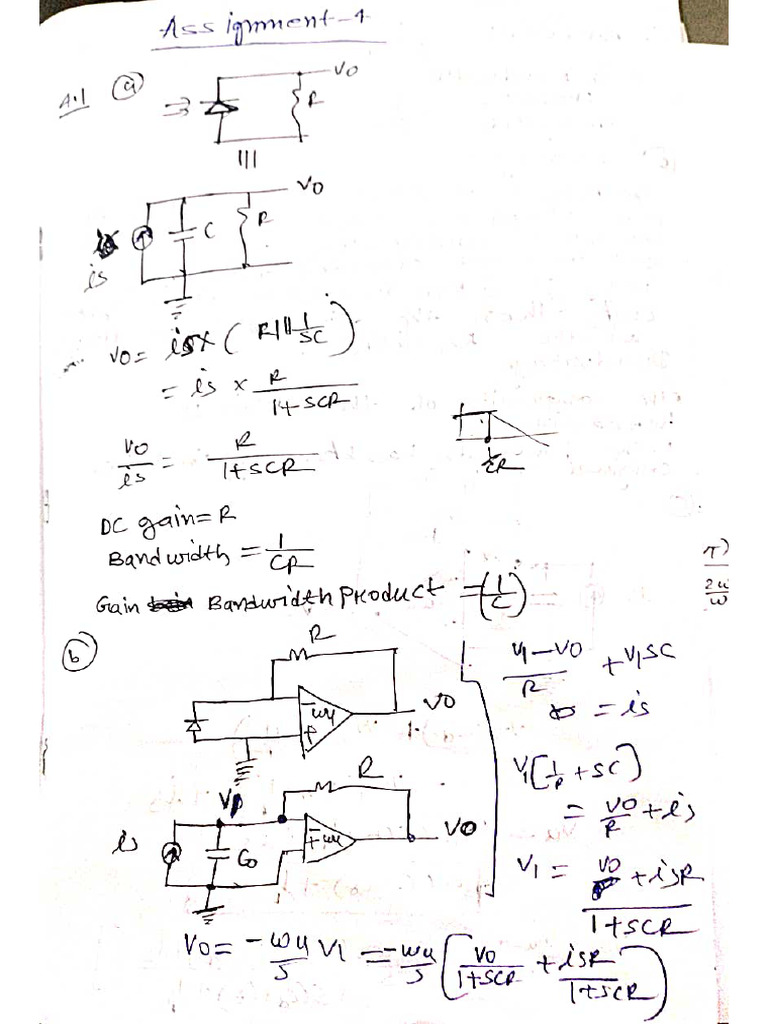 Assignment-1
A.1 (a)
VO
R
|||
VO
is
C
R
VO = is x ( R || 1/SC )
= is x R/(1+SCR)
VO/is = R/(1+SCR)
1/CR
DC gain = R
Bandwidth = 1/CR
Gain Bandwidth Product = (1/C)
(b)
R
- ωu
+
VO
V1
R
is
C0
- ωu
+
VO
(V1-VO)/R + V1SC
= is
V1[1/R + SC]
= VO/R + is
V1 = (VO + isR)/(1+SCR)
VO = -ωu/S V1 = -ωu/S [ VO/(1+SCR) + isR/(1+SCR) ]